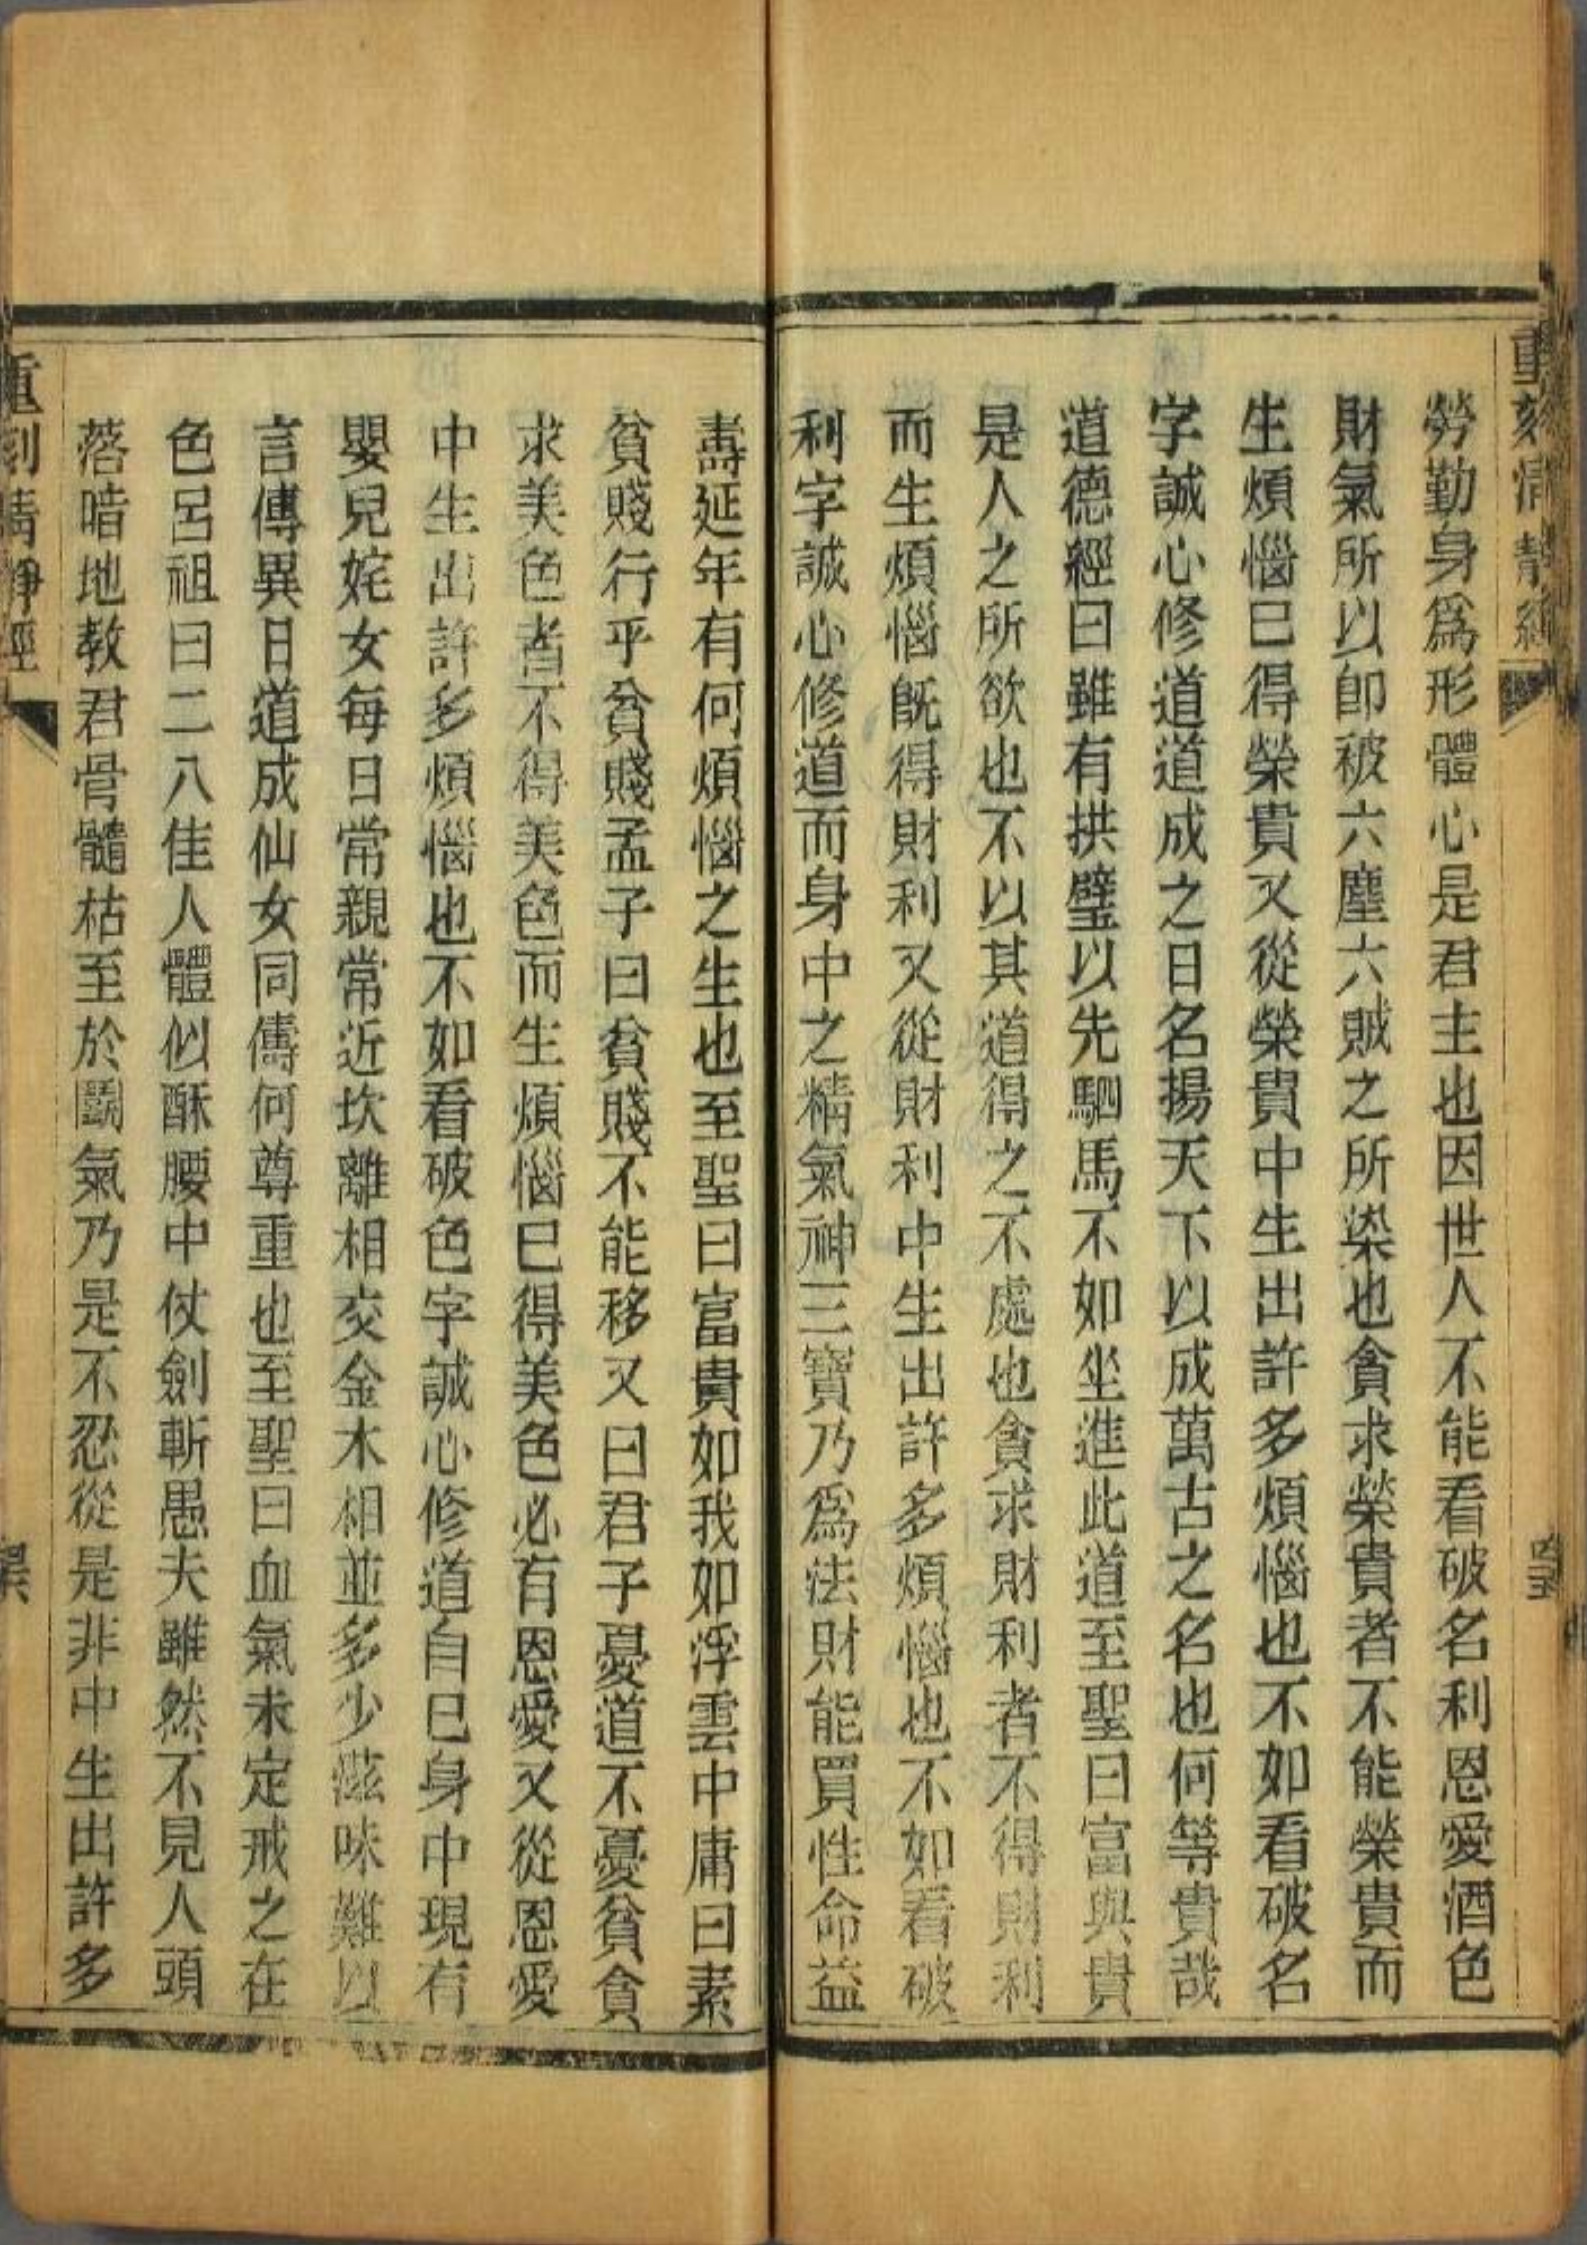 重刻清靜經
勞勤身爲形體心是君主也因世人不能看破名利恩愛酒色
財氣所以卽被六塵六賊之所染也貪求榮貴者不能榮貴而
生煩惱巳得榮貴又從榮貴中生出許多煩惱也不如看破名
字誠心修道道成之日名揚天下以成萬古之名也何等貴哉
道德經曰雖有拱璧以先駟馬不如坐進此道至聖曰富與貴
是人之所欲也不以其道得之不處也貪求財利者不得財利
而生煩惱旣得財利又從財利中生出許多煩惱也不如看破
利字誠心修道而身中之精氣神三寶乃爲法財能買性命益
壽延年有何煩惱之生也至聖曰富貴如我如浮雲中庸曰素
貧賤行乎貧賤孟子曰貧賤不能移又曰君子憂道不憂貧貪
求美色者不得美色而生煩惱巳得美色必有恩愛又從恩愛
中生出許多煩惱也不如看破色字誠心修道自巳身中現有
嬰兒姹女每日常親常近坎離相交金木相並多少滋味難以
言傳異日道成仙女同儔何尊重也至聖曰血氣未定戒之在
色呂祖曰二八佳人體似酥腰中仗劍斬愚夫雖然不見人頭
落暗地教君骨髓枯至於鬬氣乃是不忍從是非中生出許多
重刻清靜經